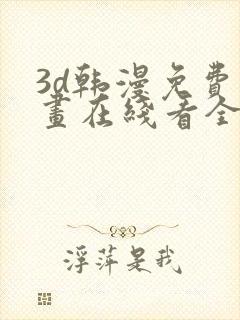 3d韩漫免费
画在线看全
浮萍是我